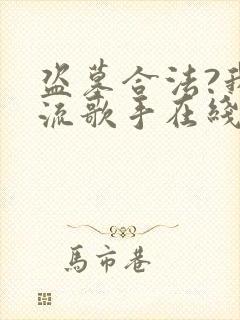 盗墓合法?我
流歌手在綫
馬市巷